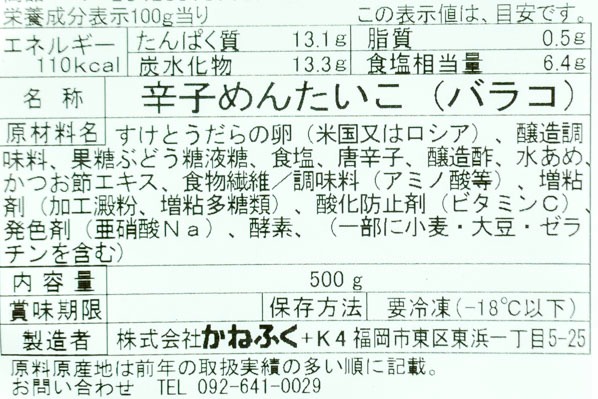 栄養成分表示100g当り この表示値は、目安です。
エネルギー たんぱく質 13.1g 脂質 0.5g
110kcal 炭水化物 13.3g 食塩相当量 6.4g
名 称 辛子めんたいこ（バラコ）
原材料名 すけとうだらの卵（米国又はロシア）、醸造調
味料、果糖ぶどう糖液糖、食塩、唐辛子、醸造酢、水あめ、
かつお節エキス、食物繊維／調味料（アミノ酸等）、増粘
剤（加工澱粉、増粘多糖類）、酸化防止剤（ビタミンC）、
発色剤（亜硝酸Na）、酵素、（一部に小麦・大豆・ゼラ
チンを含む）
内 容 量 500g
賞味期限 保存方法 要冷凍(-18℃以下)
製造者 株式会社かねふく+K4 福岡市東区東浜一丁目5-25
原料原産地は前年の取扱実績の多い順に記載。
お問い合わせ TEL 092-641-0029